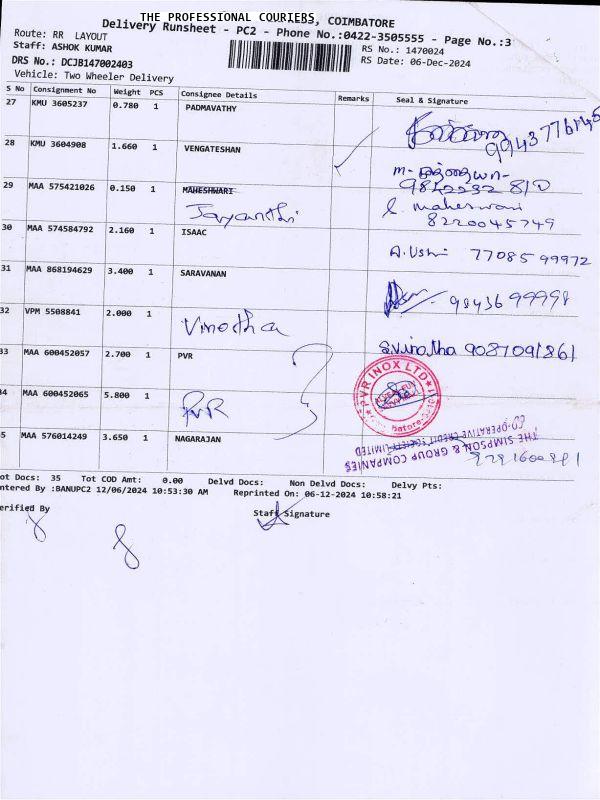 THE PROFESSIONAL COURIERS, COIMBATORE
Delivery Runsheet - PC2 - Phone No.:0422-3505555 - Page No.:3
Route: RR LAYOUT
Staff: ASHOK KUMAR
RS No.: 1470024
DRS No.: DCJB147002403
RS Date: 06-Dec-2024
Vehicle: Two Wheeler Delivery
S No Consignment No Weight PCS Consignee Details Remarks Seal & Signature
27 KMU 3605237 0.780 1 PADMAVATHY
28 KMU 3604908 1.660 1 VENGATESHAN
29 MAA 575421026 0.150 1 MAHESHWARI
Jayanthi
S. maheswari
8220045749
30 MAA 574584792 2.160 1 ISAAC
A. Usha 7708599972
31 MAA 868194629 3.400 1 SARAVANAN
9843699998
32 VPM 5508841 2.000 1
Vinotha
S.vinotha 9087091861
33 MAA 600452057 2.700 1 PVR
PVR INOX LTD
34 MAA 600452065 5.800 1
PVR
35 MAA 576014249 3.650 1 NAGARAJAN
THE SIMPSON & GROUP COMPANIES
CO-OPERATIVE CREDIT SOCIETY LIMITED
ot Docs: 35 Tot COD Amt: 0.00 Delvd Docs: Non Delvd Docs: Delvy Pts:
ntered By :BANUPC2 12/06/2024 10:53:30 AM Reprinted On: 06-12-2024 10:58:21
erified By
Staff Signature